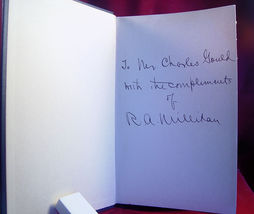 To Mr Charles Gould
with the compliments
of
R A Millikan